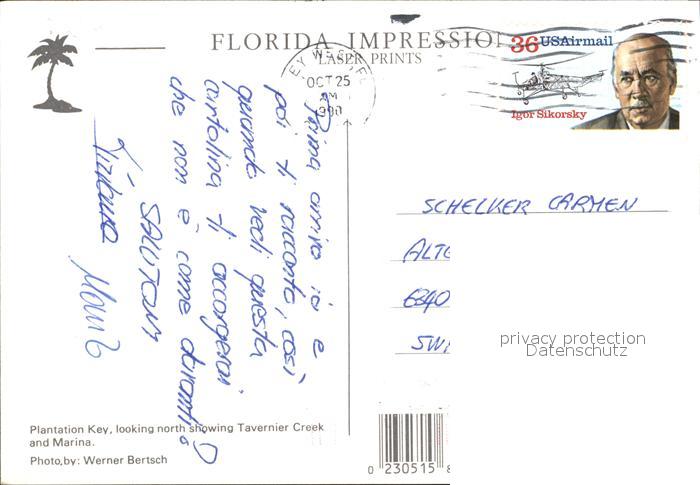 FLORIDA IMPRESSIO
LASER PRINTS
36 USAirmail
Igor Sikorsky
KEY WEST, FL
OCT 25
AM
1990
Prima arrivo io e
poi ti racconto, così
quando vedi questa
cartolina ti accorgerai
che non è come davanti!
SALUTONI
Tiziana
SCHELKER CARMEN
ALTG
6340
SWI
privacy protection
Datenschutz
Plantation Key, looking north showing Tavernier Creek
and Marina.
Photo by: Werner Bertsch
0 230515 8